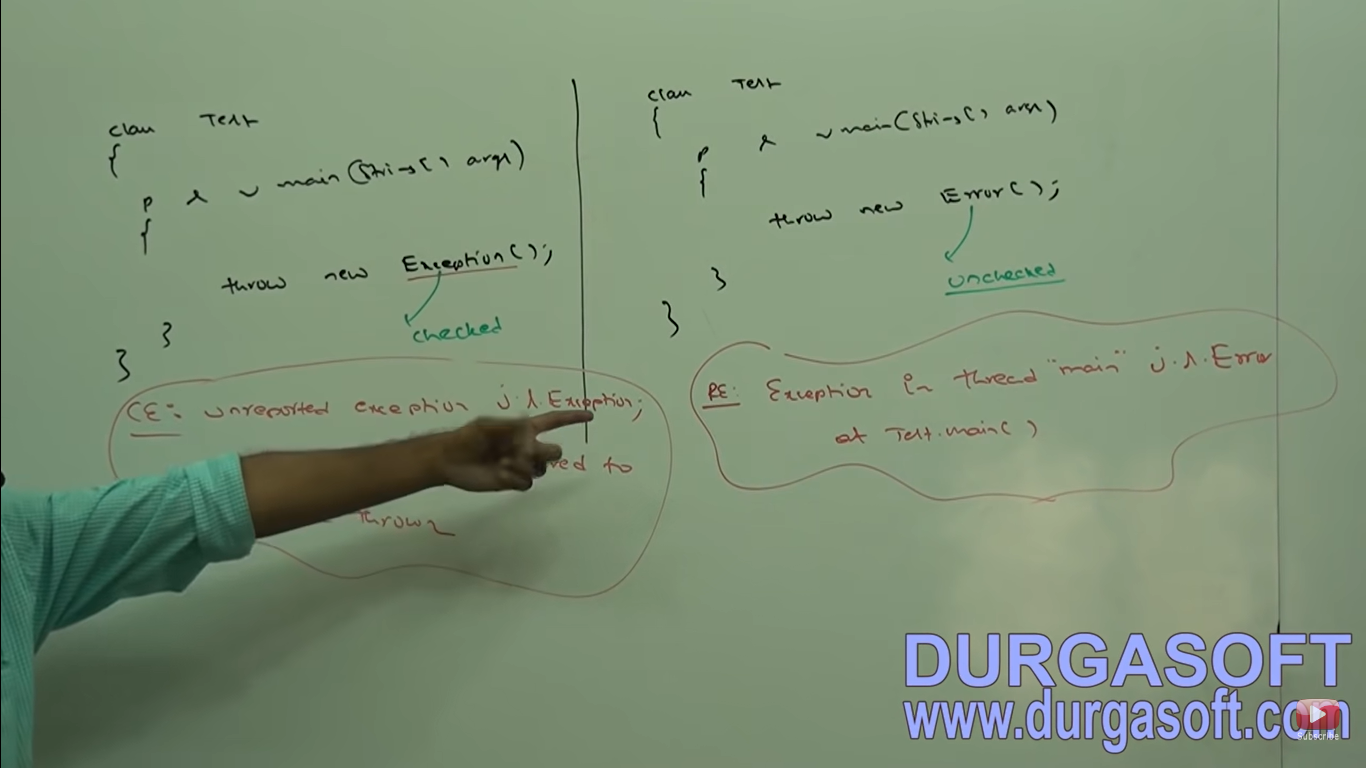 class Test
{
p s v main(String[] args)
{
throw new Exception();
checked
}
}
CE: unreported exception j.l.Exception;
to
thrown
class Test
{
p s v main(String[] args)
{
throw new Error();
unchecked
}
}
RE: Exception in thread "main" j.l.Error
at Test.main()
DURGASOFT
www.durgasoft.com
Subscribe